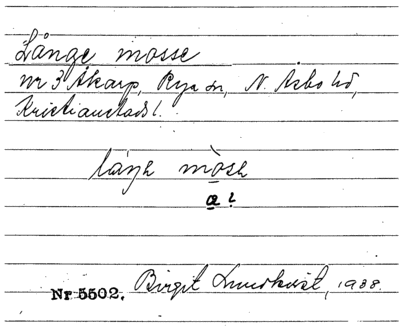 Långe mosse
nr 3 Åkarp, Rya sn, N. Åsbo hd,
Kristianstads l.
mòsɛ
æ ?
Nr 5502. Birgit Lundkvist, 1938.